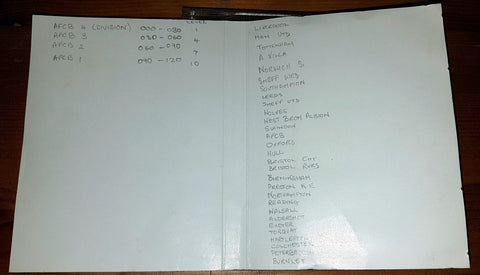 LEVEL
AFCB 4 (DIVISION) 000 - 030 1
AFCB 3 030 - 060 4
AFCB 2 060 - 090 7
AFCB 1 090 - 120 10
LIVERPOOL
MAN UTD
TOTTENHAM
A VILLA
NORWICH
SHEFF WED
SOUTHAMPTON
LEEDS
SHEFF UTD
WOLVES
WEST BROM ALBION
SWINDON
AFCB
OXFORD
HULL
BRISTOL CITY
BRISTOL RVRS
BIRMINGHAM
PRESTON N.E
NORTHAMPTON
READING
WALSALL
ALDERSHOT
EXETER
TORQUAY
HARTLEPOOL
COLCHESTER
PETERBOROUGH
BURNLEY